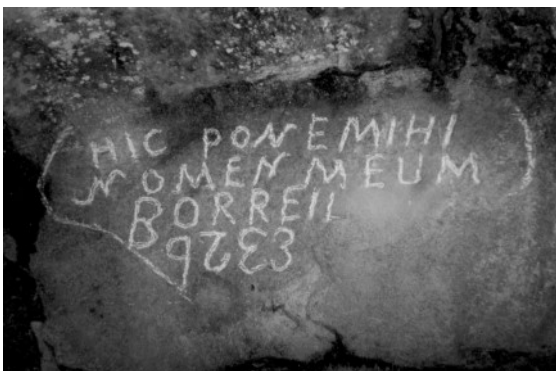 HIC PONE MIHI
NOMEN MEUM
BORREIL
92Ɛ3